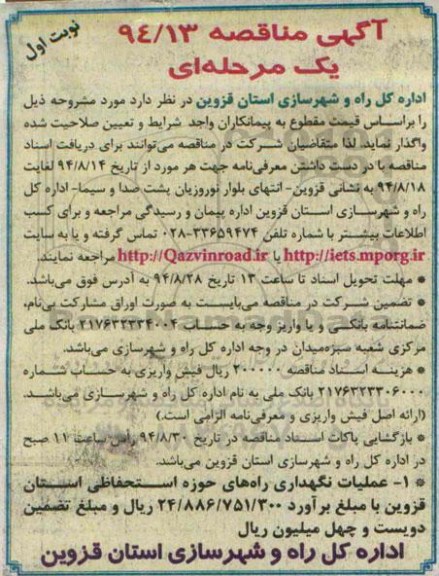 نوبت اول
آگهی مناقصه ۹۴/۱۳
یک مرحله‌ای
اداره کل راه و شهرسازی استان قزوین در نظر دارد مورد مشروحه ذیل
را براساس قیمت مقطوع به پیمانکاران واجد شرایط و تعیین صلاحیت شده
واگذار نماید. لذا متقاضیان شرکت در مناقصه می‌توانند برای دریافت اسناد
مناقصه با در دست داشتن معرفی‌نامه جهت هر مورد از تاریخ ۹۴/۸/۱۴ لغایت
۹۴/۸/۱۸ به نشانی قزوین- انتهای بلوار نوروزیان پشت صدا و سیما- اداره کل
راه و شهرسازی استان قزوین اداره پیمان و رسیدگی مراجعه و برای کسب
اطلاعات بیشتر با شماره تلفن ۳۳۶۵۹۴۷۴-۰۲۸ تماس گرفته و یا به سایت
http://iets.mporg.ir یا http://Qazvinroad.ir مراجعه نمایند.
* مهلت تحویل اسناد تا ساعت ۱۳ تاریخ ۹۴/۸/۲۸ به آدرس فوق می‌باشد.
* تضمین شرکت در مناقصه می‌بایست به صورت اوراق مشارکت بی‌نام،
ضمانتنامه بانکی و یا واریز وجه به حساب ۲۱۷۶۳۲۳۲۴۰۰۴ بانک ملی
مرکزی شعبه سبزه‌میدان در وجه اداره کل راه و شهرسازی می‌باشد.
* هزینه اسناد مناقصه ۲۰۰۰۰۰ ریال فیش واریزی به حساب شماره
۲۱۷۶۳۲۳۳۰۶۰۰۰ بانک ملی به نام اداره کل راه و شهرسازی می‌باشد.
(ارائه اصل فیش واریزی و معرفی‌نامه الزامی است.)
* بازگشایی پاکات اسناد مناقصه در تاریخ ۹۴/۸/۳۰ رأس ساعت ۱۱ صبح
در اداره کل راه و شهرسازی استان قزوین می‌باشد.
* ۱- عملیات نگهداری راه‌های حوزه استحفاظی استان
قزوین با مبلغ برآورد ۲۴/۸۸۶/۷۵۱/۳۰۰ ریال و مبلغ تضمین
دویست و چهل میلیون ریال
اداره کل راه و شهرسازی استان قزوین